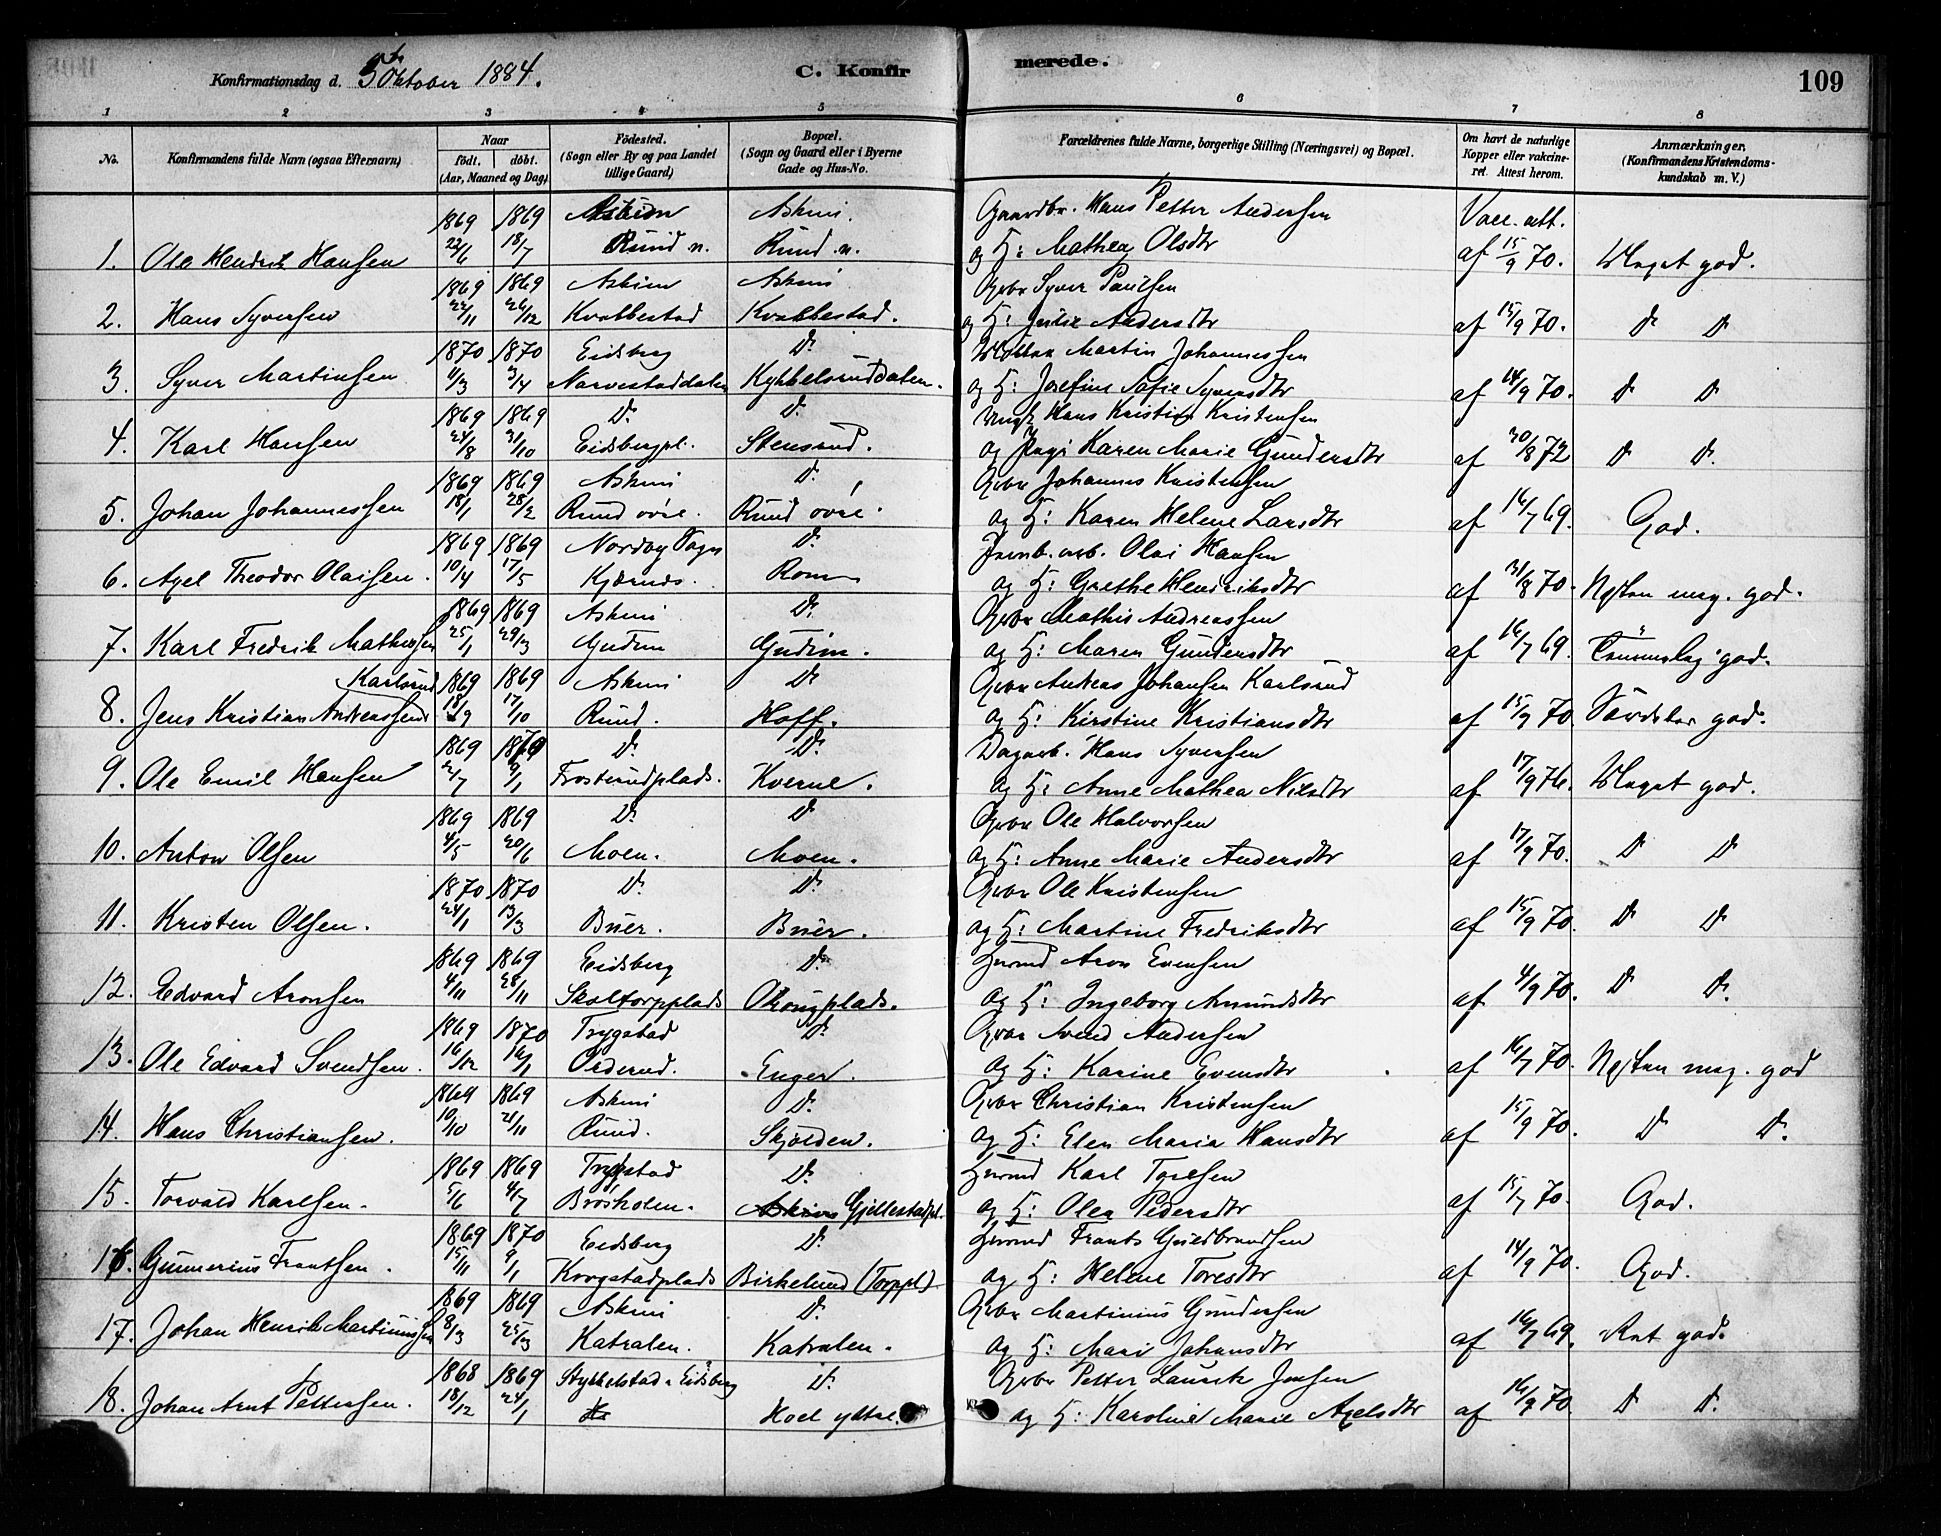 Konfirmationsdag d. 5te Oktober 1884.
C. Konfirmerede.
109
1 2 3 4 5 6 7 8
No. Konfirmandens fulde Navn (ogsaa Efternavn) Naar födt. döbt. (Aar, Maaned og Dag) Födested. (Sogn eller By og paa Landet tillige Gaard) Bopæl. (Sogn og Gaard eller i Byerne Gade og Hus-No. Forældrenes fulde Navne, borgerlige Stilling (Næringsvei) og Bopæl. Om havt de naturlige Kopper eller vakcineret. Attest herom. Anmærkninger. (Konfirmandens Kristendomskundskab m. V.)
1869 1869 Askim Askim. Gaardbr. Hans Petter Andersen Vacc. att.
1. Ole Hendrik Hansen 22/6 18/7 Rund n. Rund n. og H: Mathea Olsdtr af 15/9 70. Meget god.
1869 1869 Askim Askim Gbr Syver Paulsen
2. Hans Syversen 22/11 26/12 Kvabbestad Kvabbestad. og H: Julie Andersdtr af 15/9 70. Do Do
1870 1870 Eidsberg Do Møller Martin Johannessen
3. Syver Martinsen 11/3 3/4 Narvestaddalen Kykkelsruddalen. og H: Josefine Sofie Syversdtr af 14/9 70. Do Do
1869 1869 Do Do Ungk Hans Kristian Kristensen
4. Karl Hansen 24/8 31/10 Eidsbergpl. Stensrud. og Pige Karen Marie Gundersdtr af 30/8 72 Do Do.
1869 1869 Askim Do. Gbr Johannes Kristensen
5. Johan Johannessen 18/1 28/2 Rund övre. Rund övre. og H: Karen Helene Larsdtr af 16/7 69. God.
1869 1869 Nordby Sogn Do Jernb. arb. Olai Hansen
6. Axel Theodor Olaisen. 10/4 17/5 Kjærnes. Rom og H: Grethe Hendriksdtr af 31/8 70. Næsten meg. god.
1869 1869 Askim Do. Gbr Mathis Andreassen
7. Karl Fredrik Mathisen 25/1 29/3 Gudim Gudim. og H: Maren Gundersdtr af 16/7 69. god.
Karlsrud 1869 1869 Askim Do Gbr Andreas Johansen Karlsrud
8. Jens Kristian Andreassen 18/9 17/10 Rund. Hoff. og H: Kirstine Kristiansdtr af 15/9 70 Særdeles god.
1869 1870 Do Do. Dagarb. Hans Syversen
9. Ole Emil Hansen 2/7 9/1 Frosterudplads. Kverne. og H: Anne Mathea Nilsdtr af 17/9 76. Meget god.
1869 1869 Do Do Gbr Ole Halvorsen
10. Anton Olsen 4/5 20/6 Moen. Moen. og H: Anne Marie Andersdtr af 17/9 70. Do Do
1870 1870 Do. Do. Gbr Ole Kristensen
11. Kristen Olsen. 24/1 13/3 Buer. Buer. og H: Martine Fredriksdtr af 15/9 70. Do Do
1869 1869 Eidsberg Do Husmd Aron Evensen
12. Edvard Aronsen 4/11 28/11 Skoltorpplads Okongplads. og H: Ingeborg Amundsdtr af 4/9 70. Do Do.
1869 1870 Trygstad Do. Gbr Svend Andersen
13. Ole Edvard Svendsen. 16/12 16/1 Orderud. Enger. og H: Karine Evensdtr af 16/7 70. Næsten meg. god
1869 1869 Askim Do. Gbr Christian Kristensen
14. Hans Christiansen. 10/10 21/11 Rund. Skjolden. og H: Elen Maria Hansdtr af 15/9 70. Do Do.
1869 1869 Trygstad Do. Husmd Karl Torelsen
15. Torvald Karlsen. 5/6 4/7 Brosholen. Gjellestadpl. og H: Olea Pedersdtr af 15/7 70. God.
1869 1870 Eidsberg Do. Husmd Frants Guldbrandsen
16. Gunnerius Frantsen. 15/11 9/1 Korgstadplads Birkelund (Torppl.) og H: Helene Toresdtr af 14/9 70. God.
1869 1869 Askim Do. Gbr Martinius Gundersen
17. Johan Henrik Martiniussen 8/3 25/3 Katralen. Katralen. og H: Mari Johansdtr af 16/7 69. Ret god.
1868 1869 Stykkelstad i Eidsberg Do. Gbr Petter Laurits Jensen
18. Johan Arnt Pettersen. 18/12 24/1 Hoel yttre. og H: Karoline Marie Axelsdtr af 16/9 70. Do Do.